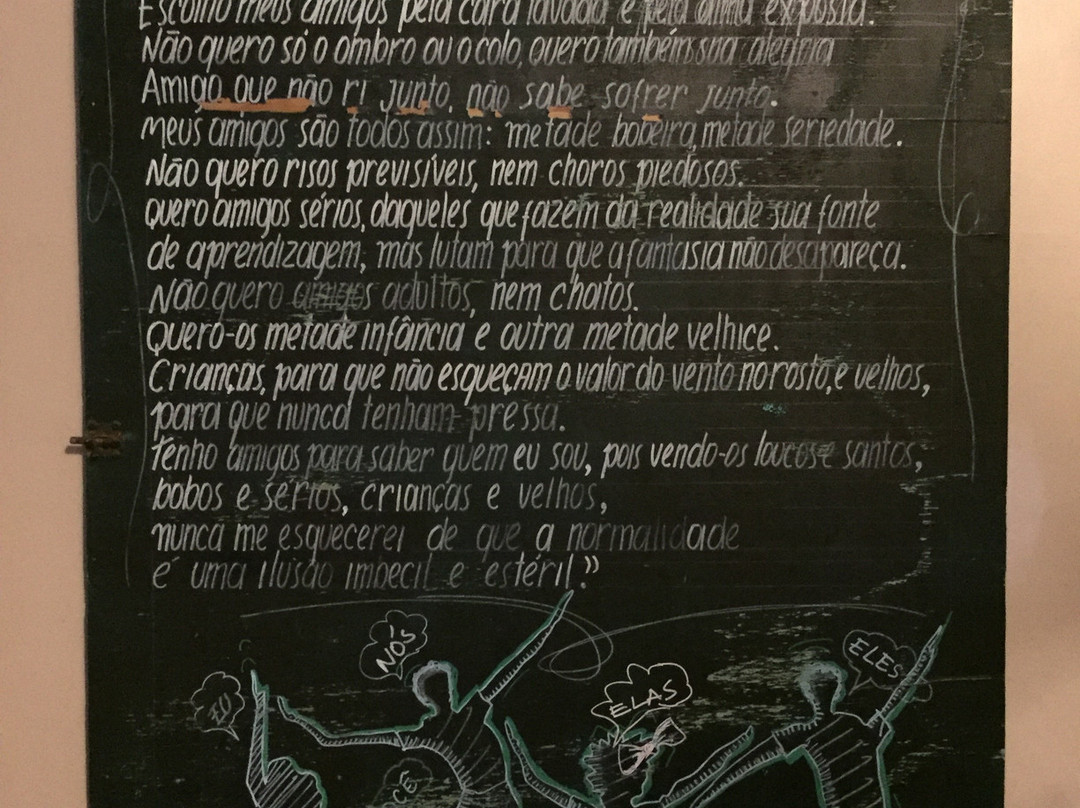 Escolho meus amigos pela cara lavada e pela alma exposta.
Não quero só o ombro ou o colo, quero também sua alegria
Amigo que não ri junto, não sabe sofrer junto.
Meus amigos são todos assim: metade bobeira, metade seriedade.
Não quero risos previsíveis, nem choros piedosos.
Quero amigos sérios, daqueles que fazem da realidade sua fonte
de aprendizagem, mas lutam para que a fantasia não desapareça.
Não quero amigos adultos, nem chatos.
Quero-os metade infância e outra metade velhice.
Crianças, para que não esqueçam o valor do vento no rosto, e velhos,
para que nunca tenham pressa.
Tenho amigos para saber quem eu sou, pois vendo-os loucos e santos,
bobos e sérios, crianças e velhos,
nunca me esquecerei de que a normalidade
é uma ilusão imbecil e estéril."
NÓS
ELES
ELAS
EU
CÊ